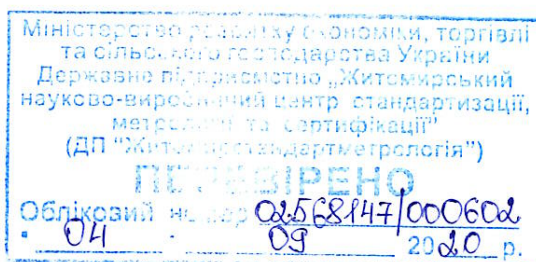 Міністерство розвитку економіки, торгівлі
та сільського господарства України
Державне підприємство „Житомирський
науково-виробничий центр стандартизації,
метрології та сертифікації"
(ДП "Житомирстандартметрологія")
ПЕРЕВІРЕНО
Обліковий номер 02568147/000602
" 04 " 09 2020 р.